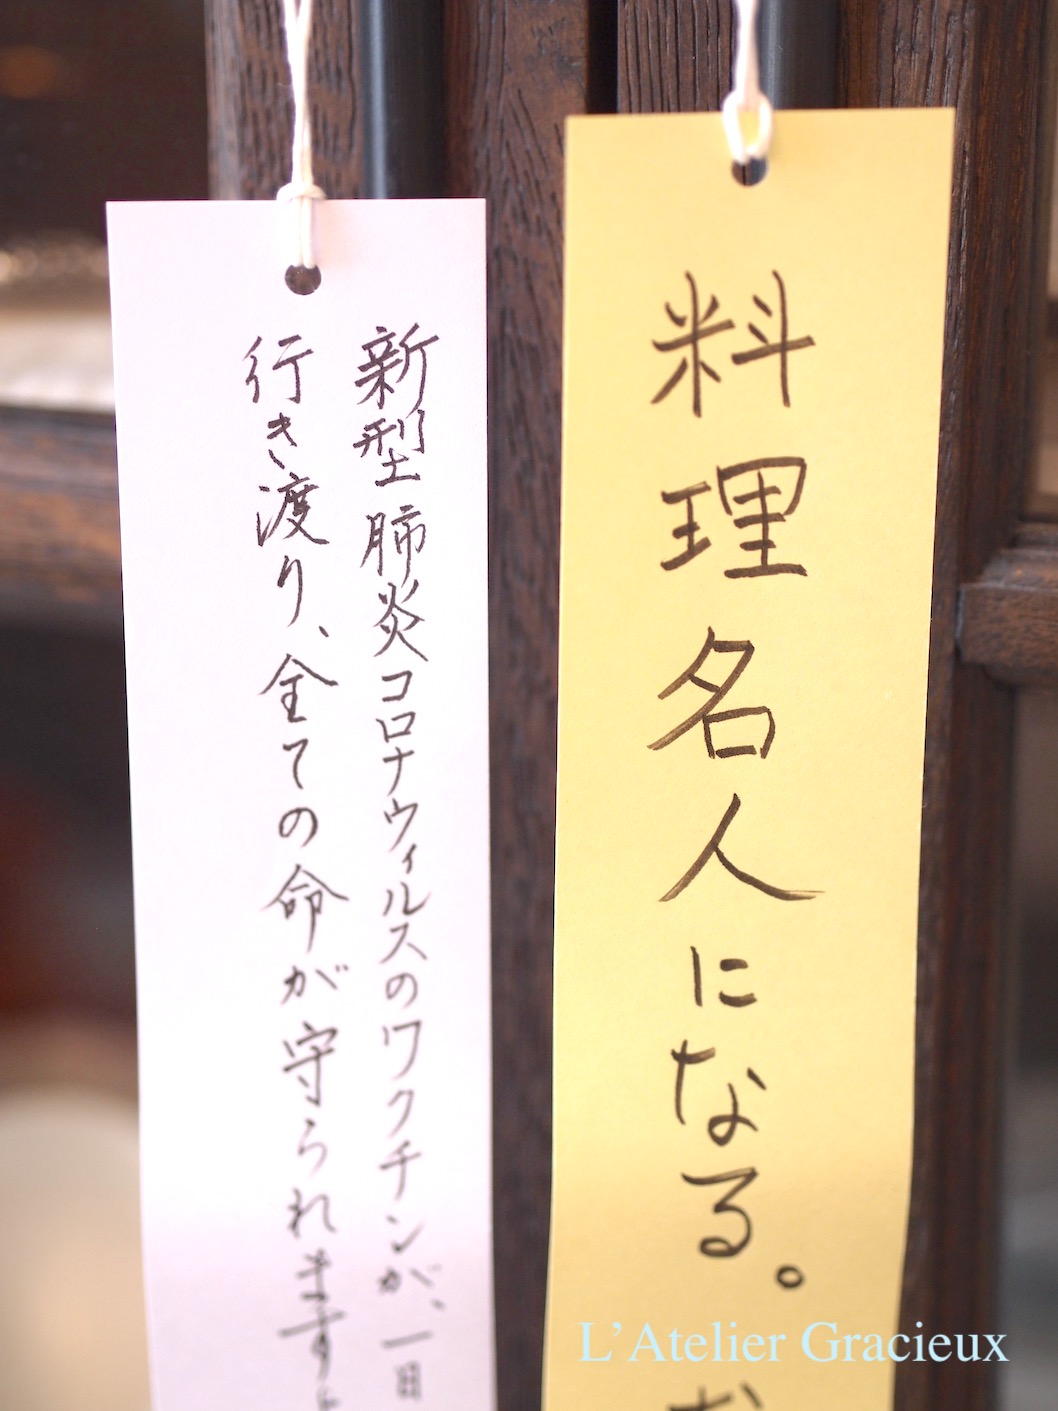 料理名人になる。
新型肺炎コロナウィルスのワクチンが、一日
行き渡り、全ての命が守られます
L'Atelier Gracieux